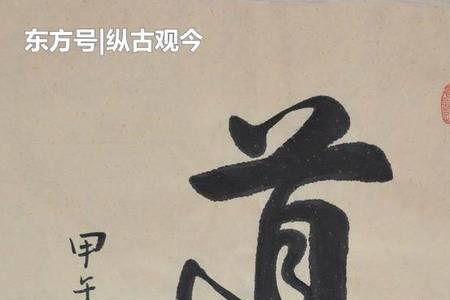 东方号|纵古观今
道
甲午